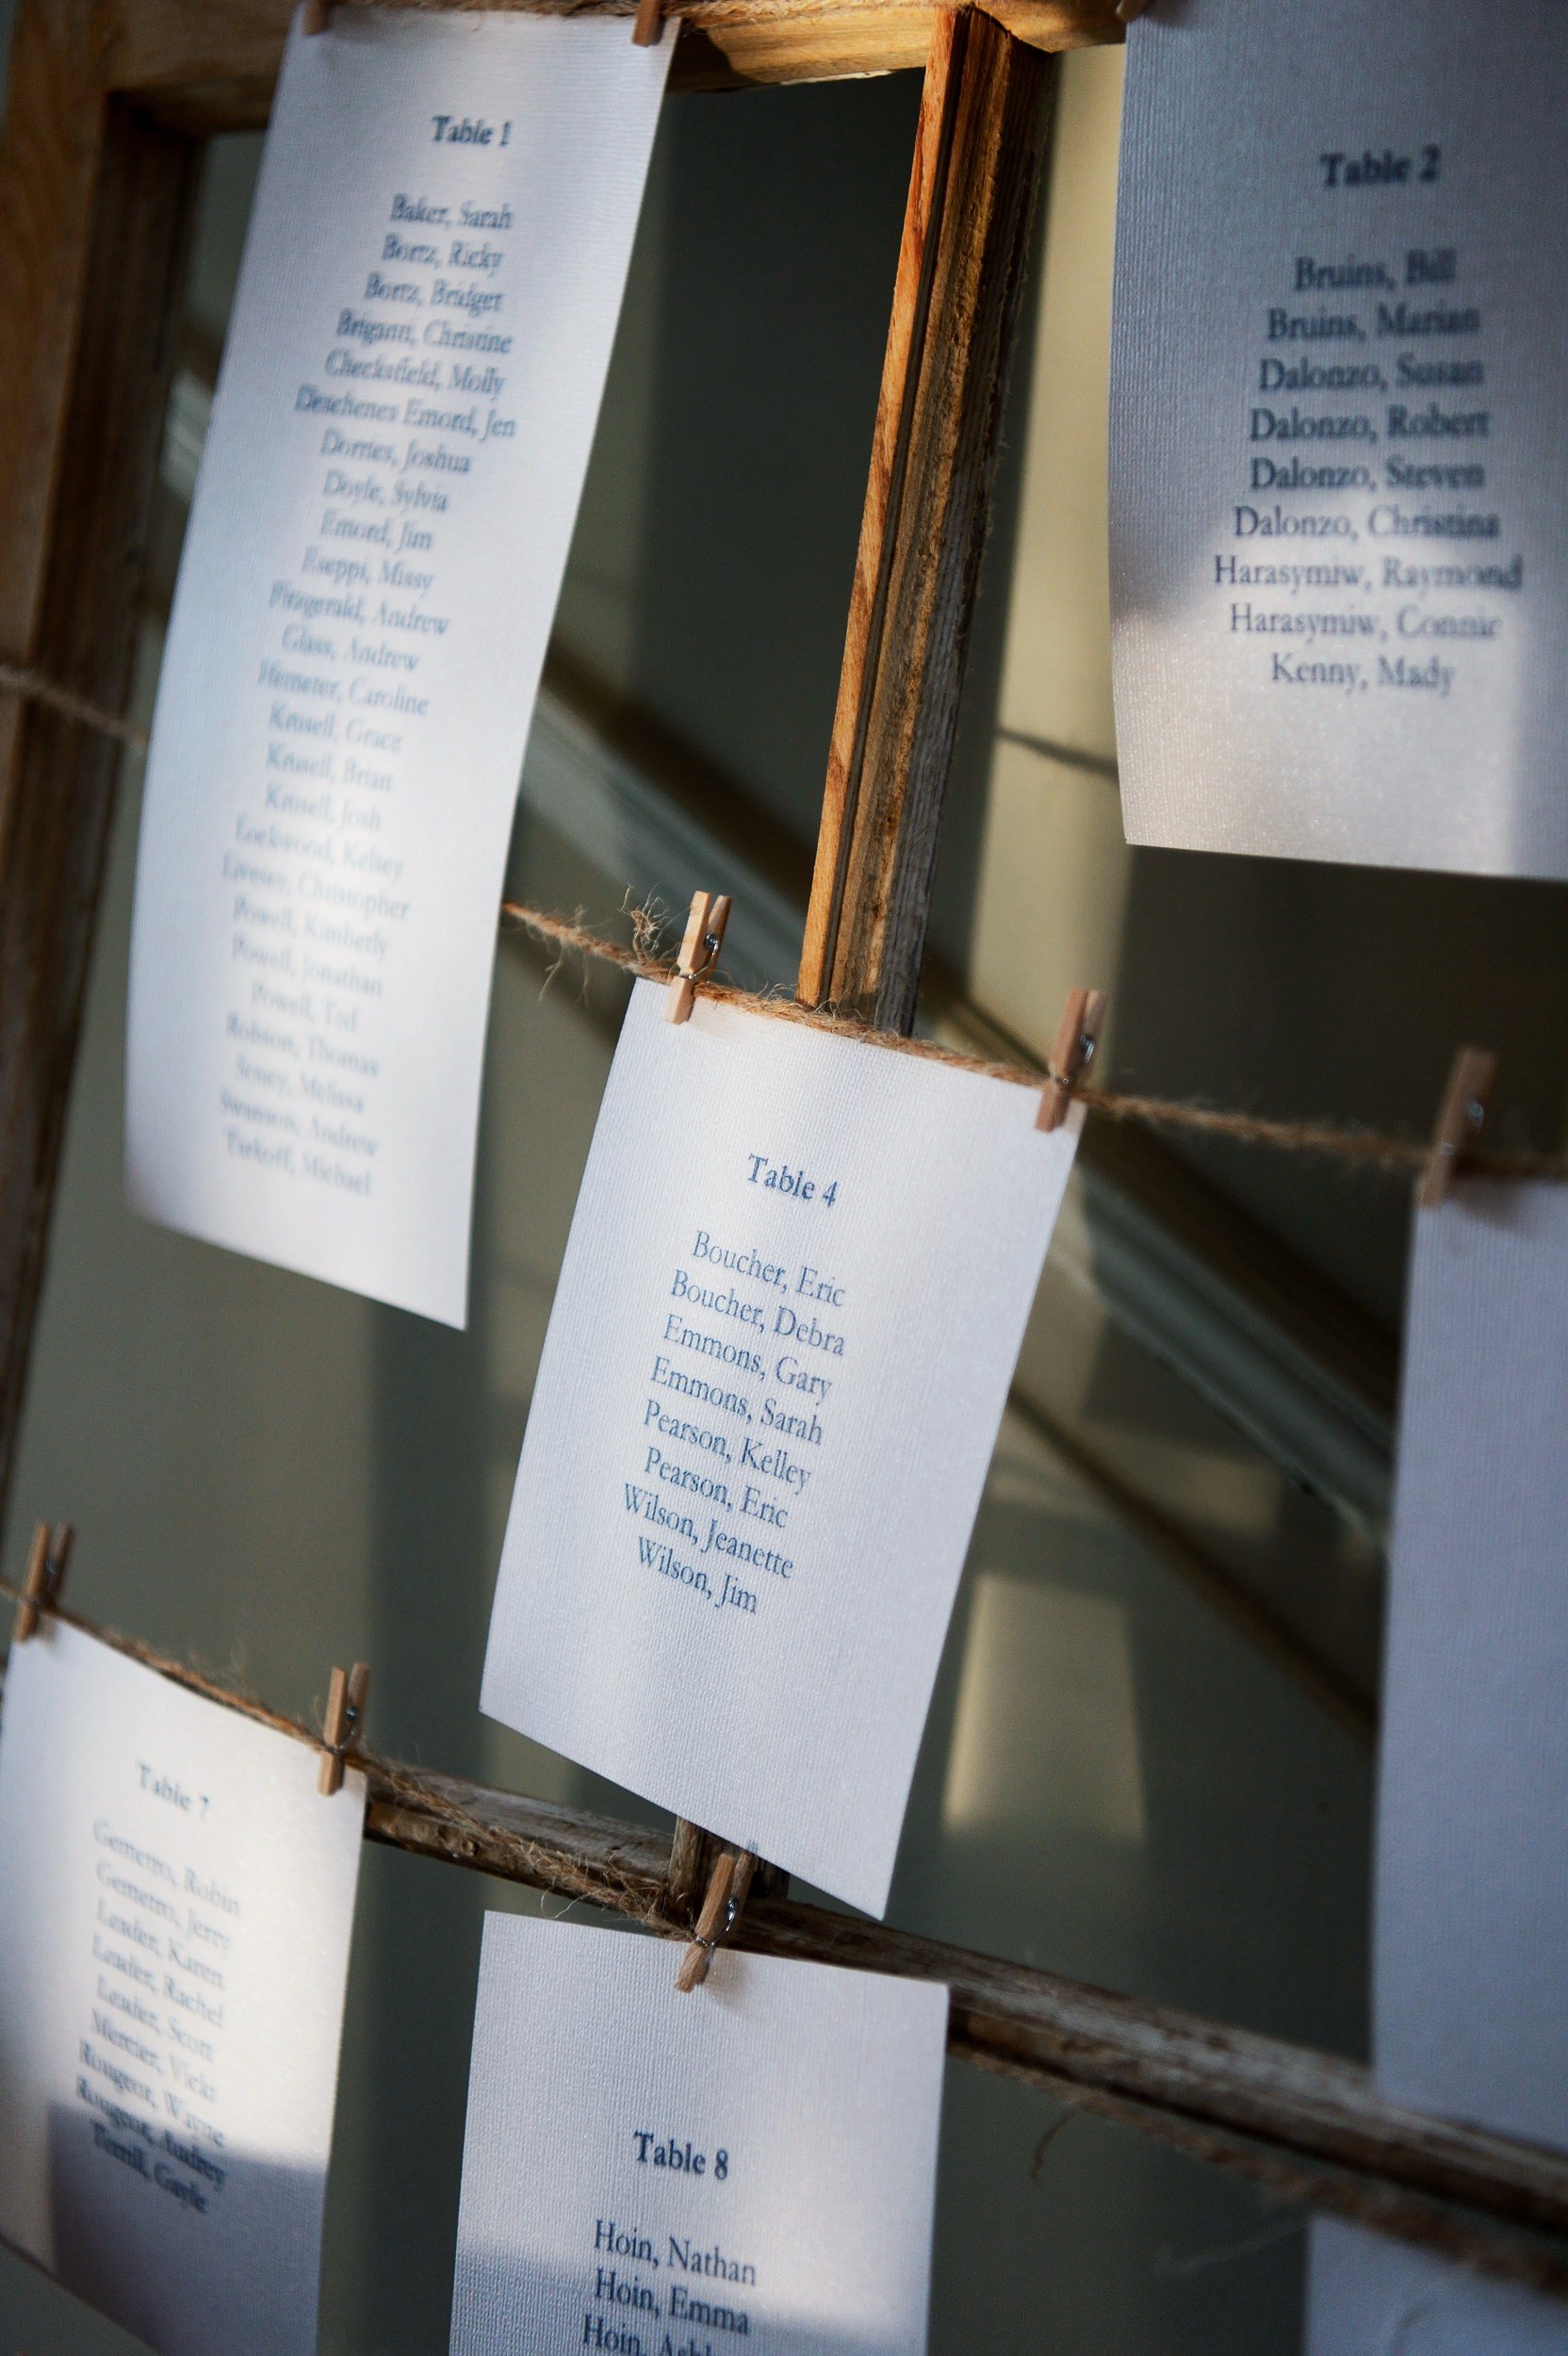 Table 1
Baker, Sarah
Bortz, Ricky
Bortz, Bridget
Christine
Checksfield, Molly
Deschenes Emord, Jen
Dorries, Joshua
Doyle, Sylvia
Emord, Jim
Eseppi, Missy
Fitzgerald, Andrew
Glass, Andrew
Hemeter, Caroline
Krusell, Grace
Krusell, Brian
Krusell, Josh
Lockwood, Kelsey
Livesey, Christopher
Powell, Kimberly
Powell, Jonathan
Powell, Ted
Robson, Thomas
Melissa
Swanson, Andrew
Tarkoff, Michael
Table 2
Bruins, Bill
Bruins, Marian
Dalonzo, Susan
Dalonzo, Robert
Dalonzo, Steven
Dalonzo, Christina
Harasymiw, Raymond
Harasymiw, Connie
Kenny, Mady
Table 4
Boucher, Eric
Boucher, Debra
Emmons, Gary
Emmons, Sarah
Pearson, Kelley
Pearson, Eric
Wilson, Jeanette
Wilson, Jim
Table 7
Robin
Jerry
Leader, Karen
Leader, Rachel
Leader, Scott
Mercier, Vicki
Rougeot, Wayne
Rougeot, Audrey
Gayle
Table 8
Hoin, Nathan
Hoin, Emma
Hoin,